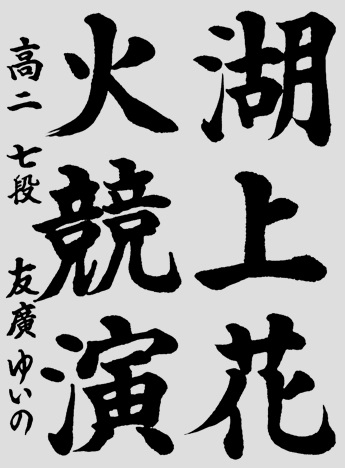 湖上花
火競演
高二 七段 友廣 ゆいの